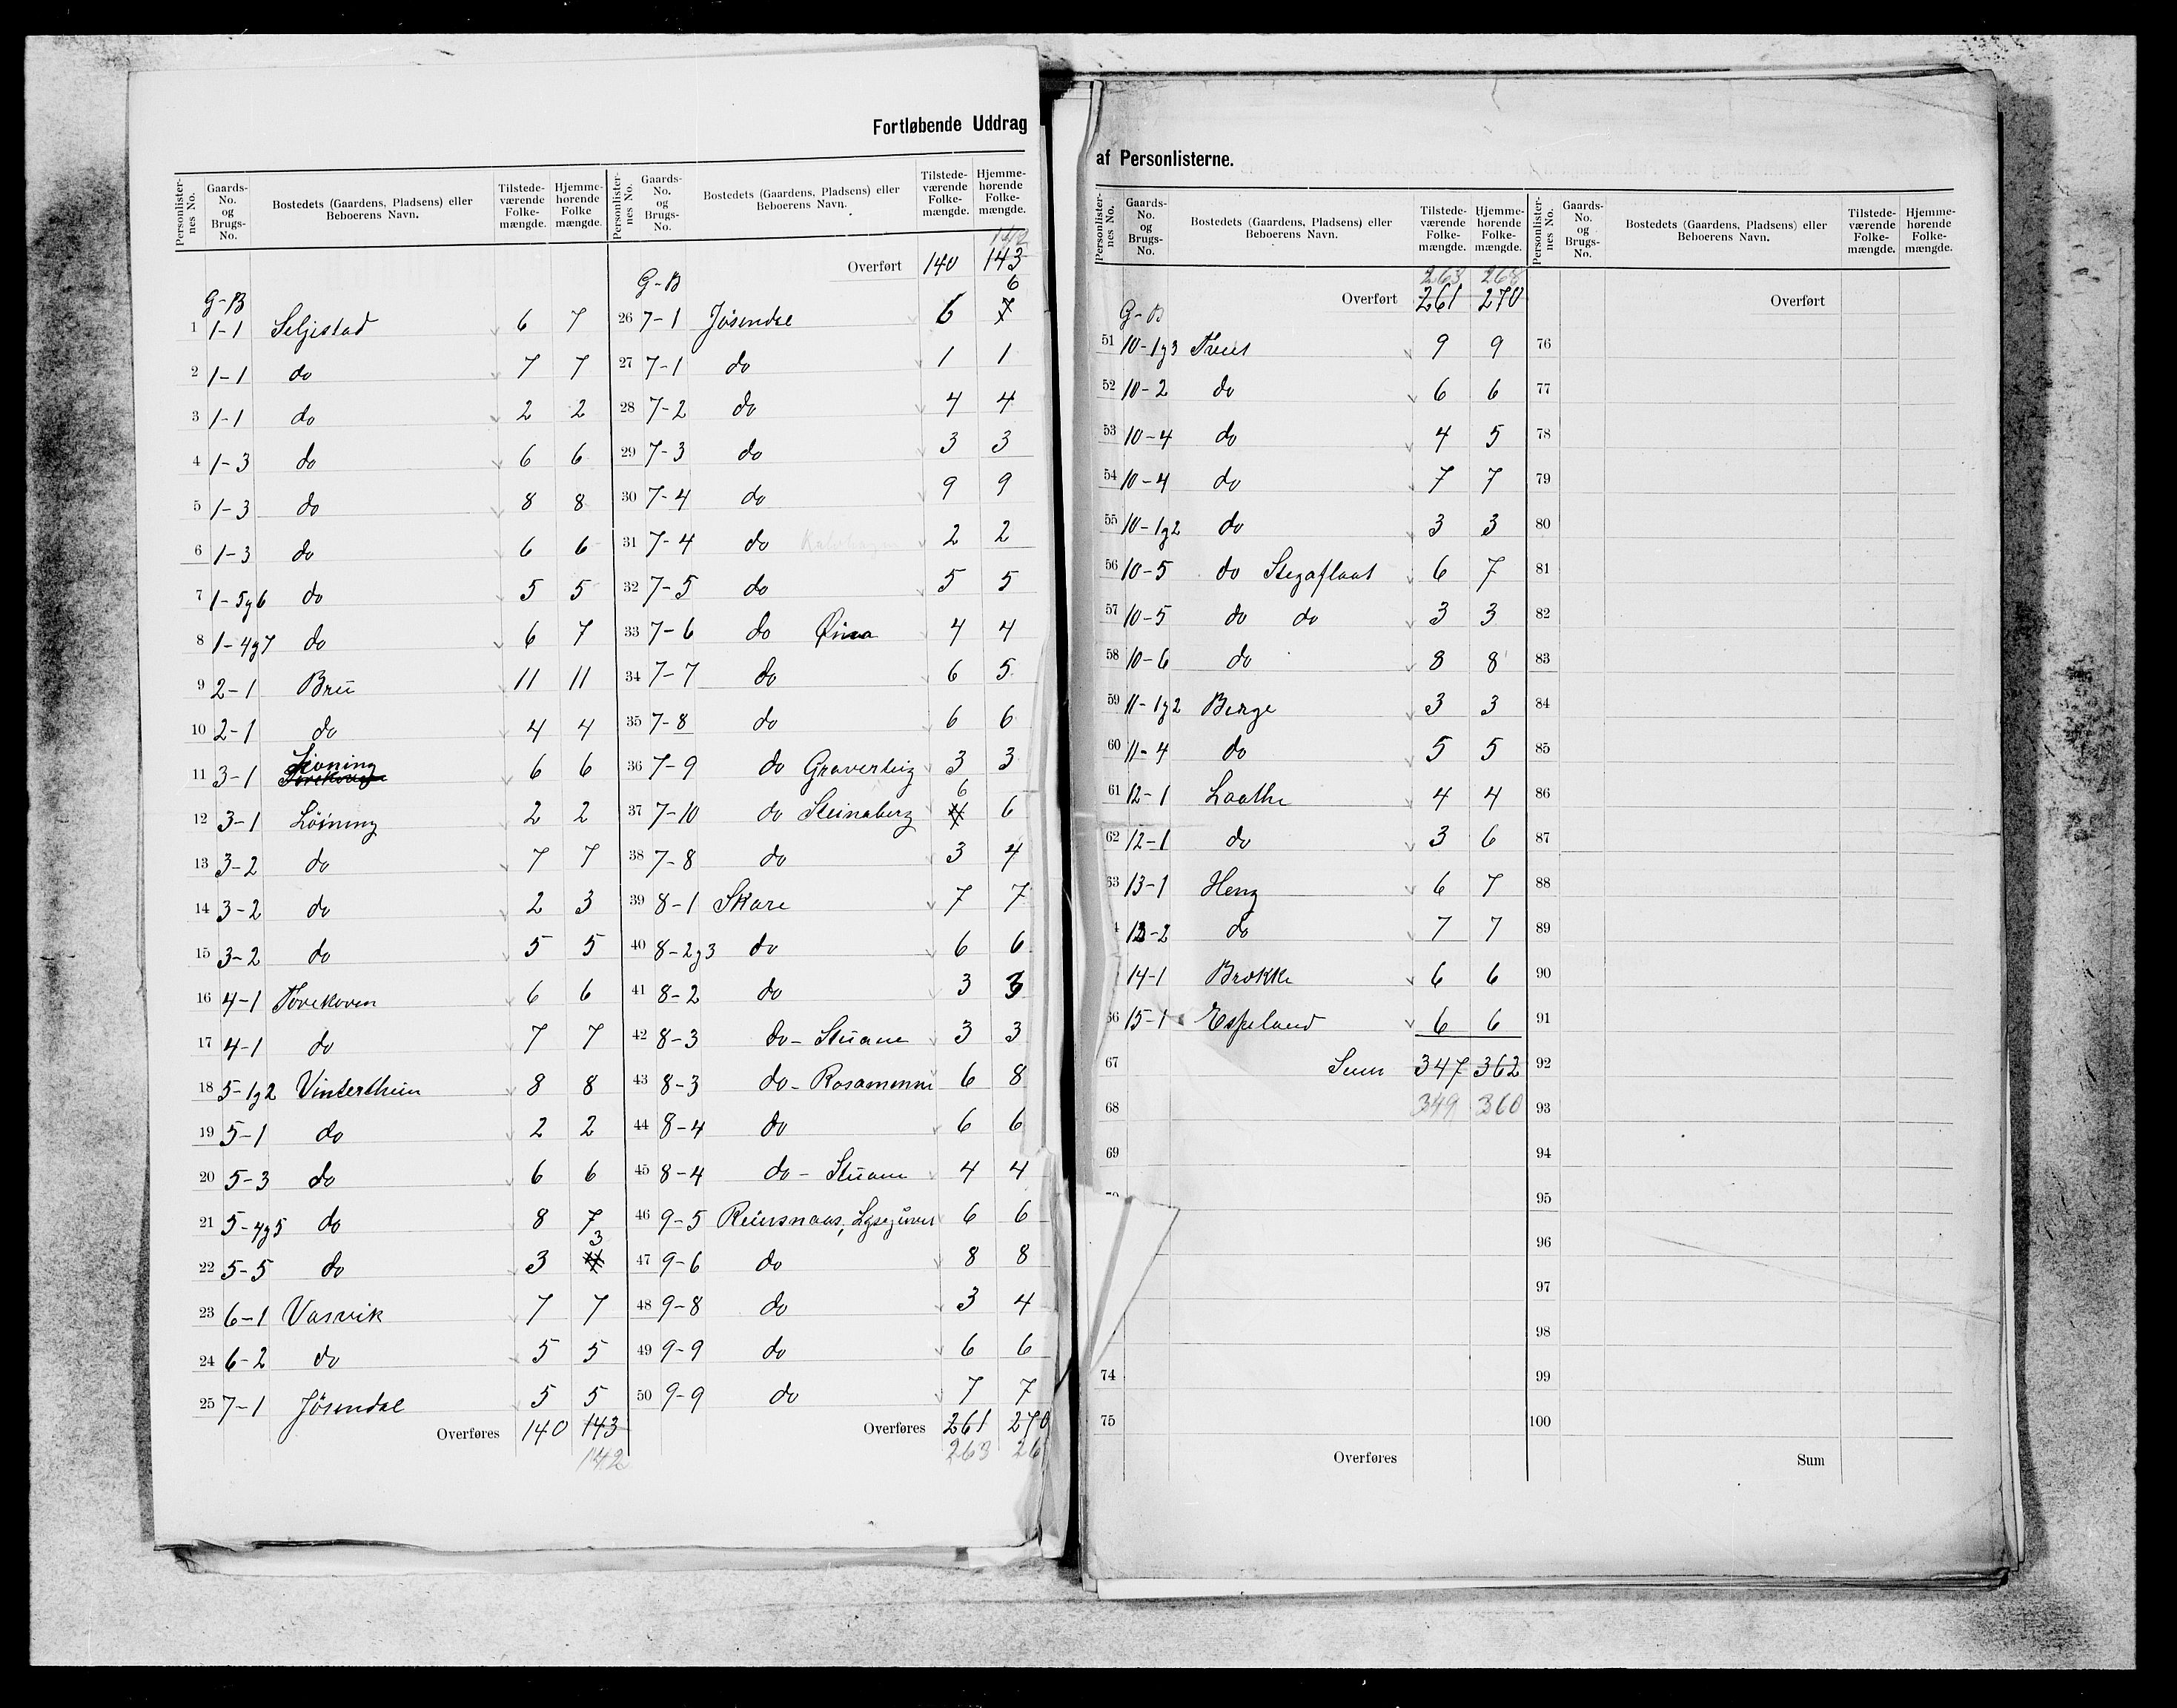 Fortløbende Uddrag
Personlister-nes No. Gaards-No. og Brugs-No. Bostedets (Gaardens, Pladsens) eller Beboerens Navn. Tilstede-værende Folke-mængde. Hjemme-hørende Folke mængde.
G-B
1 1-1 Seljestad 6 7
2 1-1 do 7 7
3 1-1 do 2 2
4 1-3 do 6 6
5 1-3 do 8 8
6 1-3 do 6 6
7 1-5g6 do 5 5
8 1-4g7 do 6 7
9 2-1 Brü 11 11
10 2-1 do 4 4
11 3-1 Löining 6 6
12 3-1 Löining 2 2
13 3-2 do 7 7
14 3-2 do 2 3
15 3-2 do 5 5
16 4-1 Tovekoven 6 6
17 4-1 do 7 7
18 5-1g2 Vinterthün 8 8
19 5-1 do 2 2
20 5-3 do 6 6
21 5-4g5 do 8 7
22 5-5 do 3 3
23 6-1 Vasvik 7 7
24 6-2 do 5 5
25 7-1 Jösendal 5 5
Overføres 140 143
142
Personlister-nes No. Gaards-No. og Brugs-No. Bostedets (Gaardens, Pladsens) eller Beboerens Navn. Tilstede-værende Folke-mængde. Hjemme-hørende Folke-mængde.
142
Overført 140 143
G-B
26 7-1 Jösendal 6 7 6
27 7-1 do 1 1
28 7-2 do 4 4
29 7-3 do 3 3
30 7-4 do 9 9
31 7-4 do 2 2
32 7-5 do 5 5
33 7-6 do 4 4
34 7-7 do 6 5
35 7-8 do 6 6
36 7-9 do 3 3
37 7-10 do Steinaberg 6 6
38 7-8 do 3 4
39 8-1 Skare 7 7
40 8-2g3 do 6 6
41 8-2 do 3 3
42 8-3 do - Stüane 3 3
43 8-3 do - 6 8
44 8-4 do 6 6
45 8-4 do - Stüane 4 4
46 9-5 Reinsnaas, 6 6
47 9-6 do 8 8
48 9-8 do 3 4
49 9-9 do 6 6
50 9-9 do 7 7
Overføres 261 270
263 26
af Personlisterne.
Personlister-nes No. Gaards-No. og Brugs-No. Bostedets (Gaardens, Pladsens) eller Beboerens Navn. Tilstede-værende Folke-mængde. Hjemme-hørende Folke-mængde.
263 268
Overført 261 270
G-B
51 10-1g3 9 9
52 10-2 do 6 6
53 10-4 do 4 5
54 10-4 do 7 7
55 10-1g2 do 3 3
56 10-5 do Stegaflaat 6 7
57 10-5 do do 3 3
58 10-6 do 8 8
59 11-1g2 Berge 3 3
60 11-4 do 5 5
61 12-1 Laathe 4 4
62 12-1 do 3 6
63 13-1 Heng 6 7
4 13-2 do 7 7
14-1 Brokke 6 6
66 15-1 Espeland 6 6
67 Sum 347 362
68 349 360
69
74
75
Overføres
Personlister-nes No. Gaards-No. og Brugs-No. Bostedets (Gaardens, Pladsens) eller Beboerens Navn. Tilstede-værende Folke-mængde. Hjemme-hørende Folke-mængde.
Overført
76
77
78
79
80
81
82
83
84
85
86
87
88
89
90
91
92
93
94
95
96
97
98
99
100
Sum